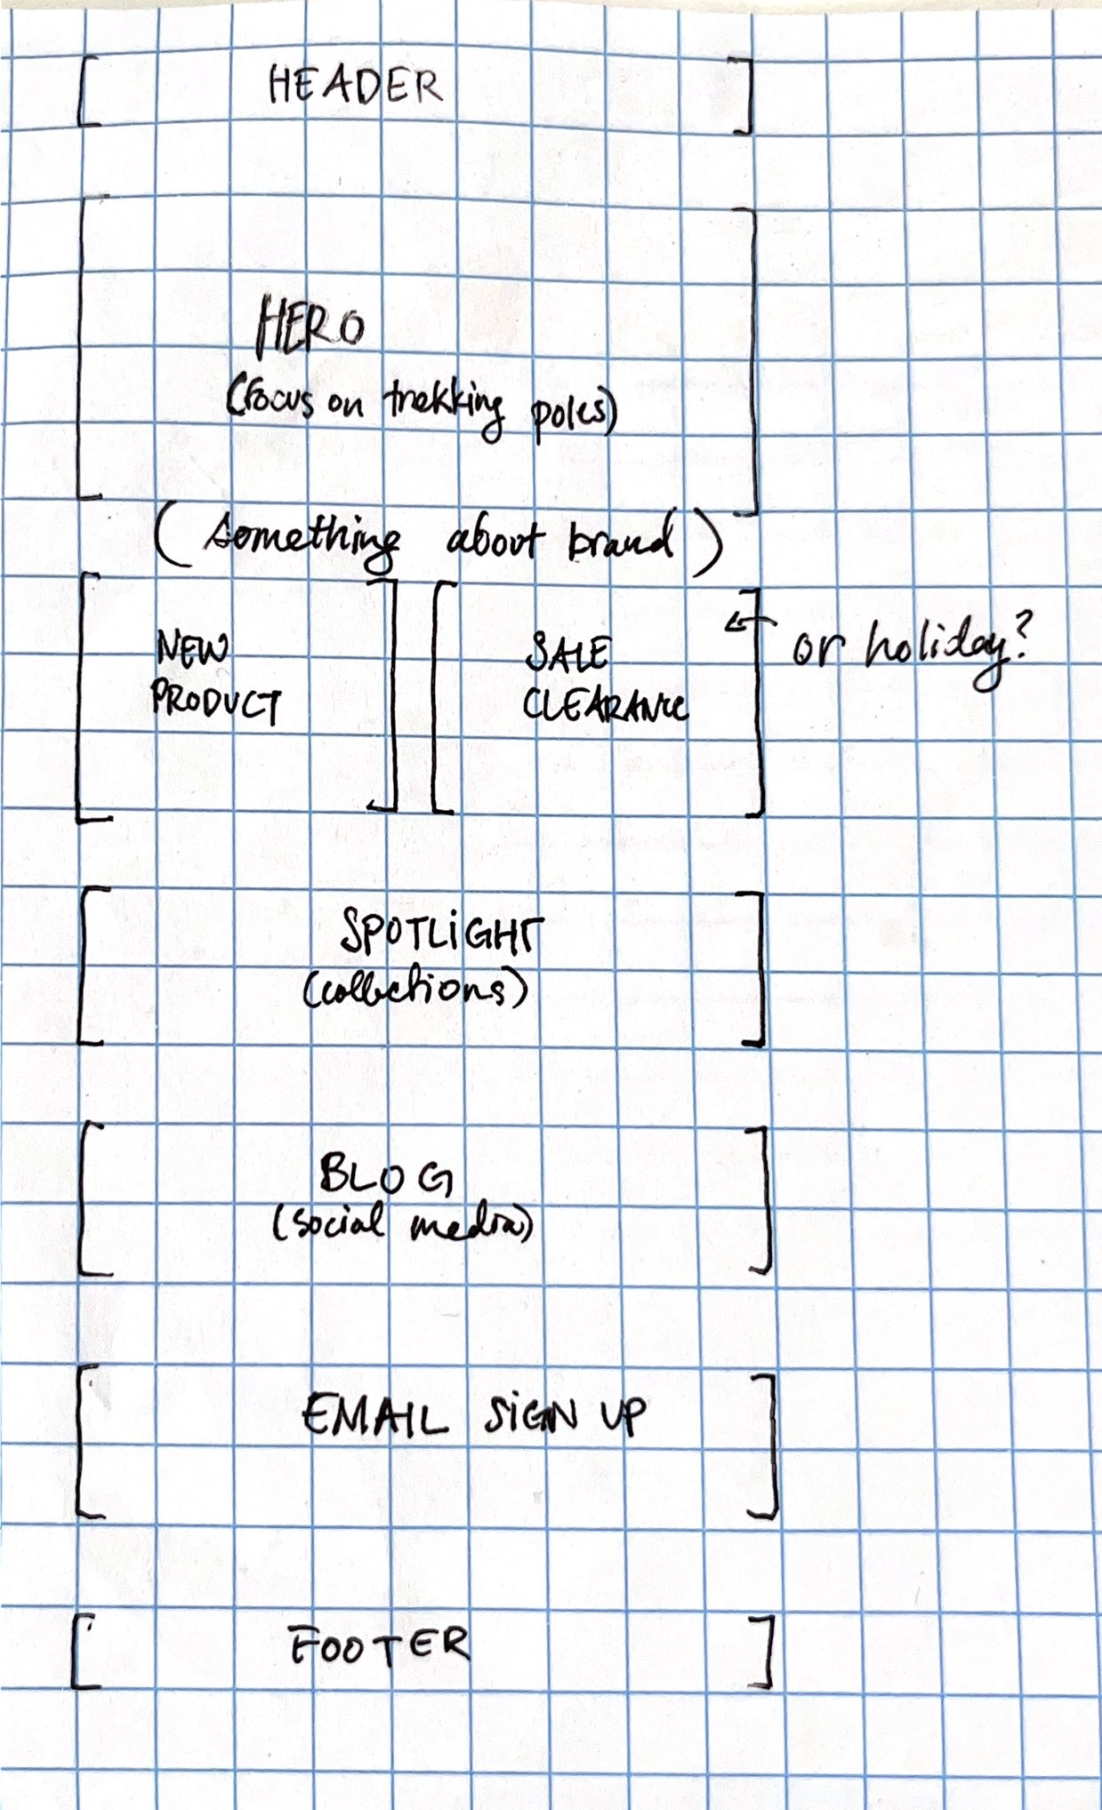 HEADER
HERO
(Focus on trekking poles)
(something about brand)
NEW
PRODUCT
SALE
CLEARANCE
or holiday?
SPOTLIGHT
(collections)
BLOG
(social media)
EMAIL SIGN UP
FOOTER